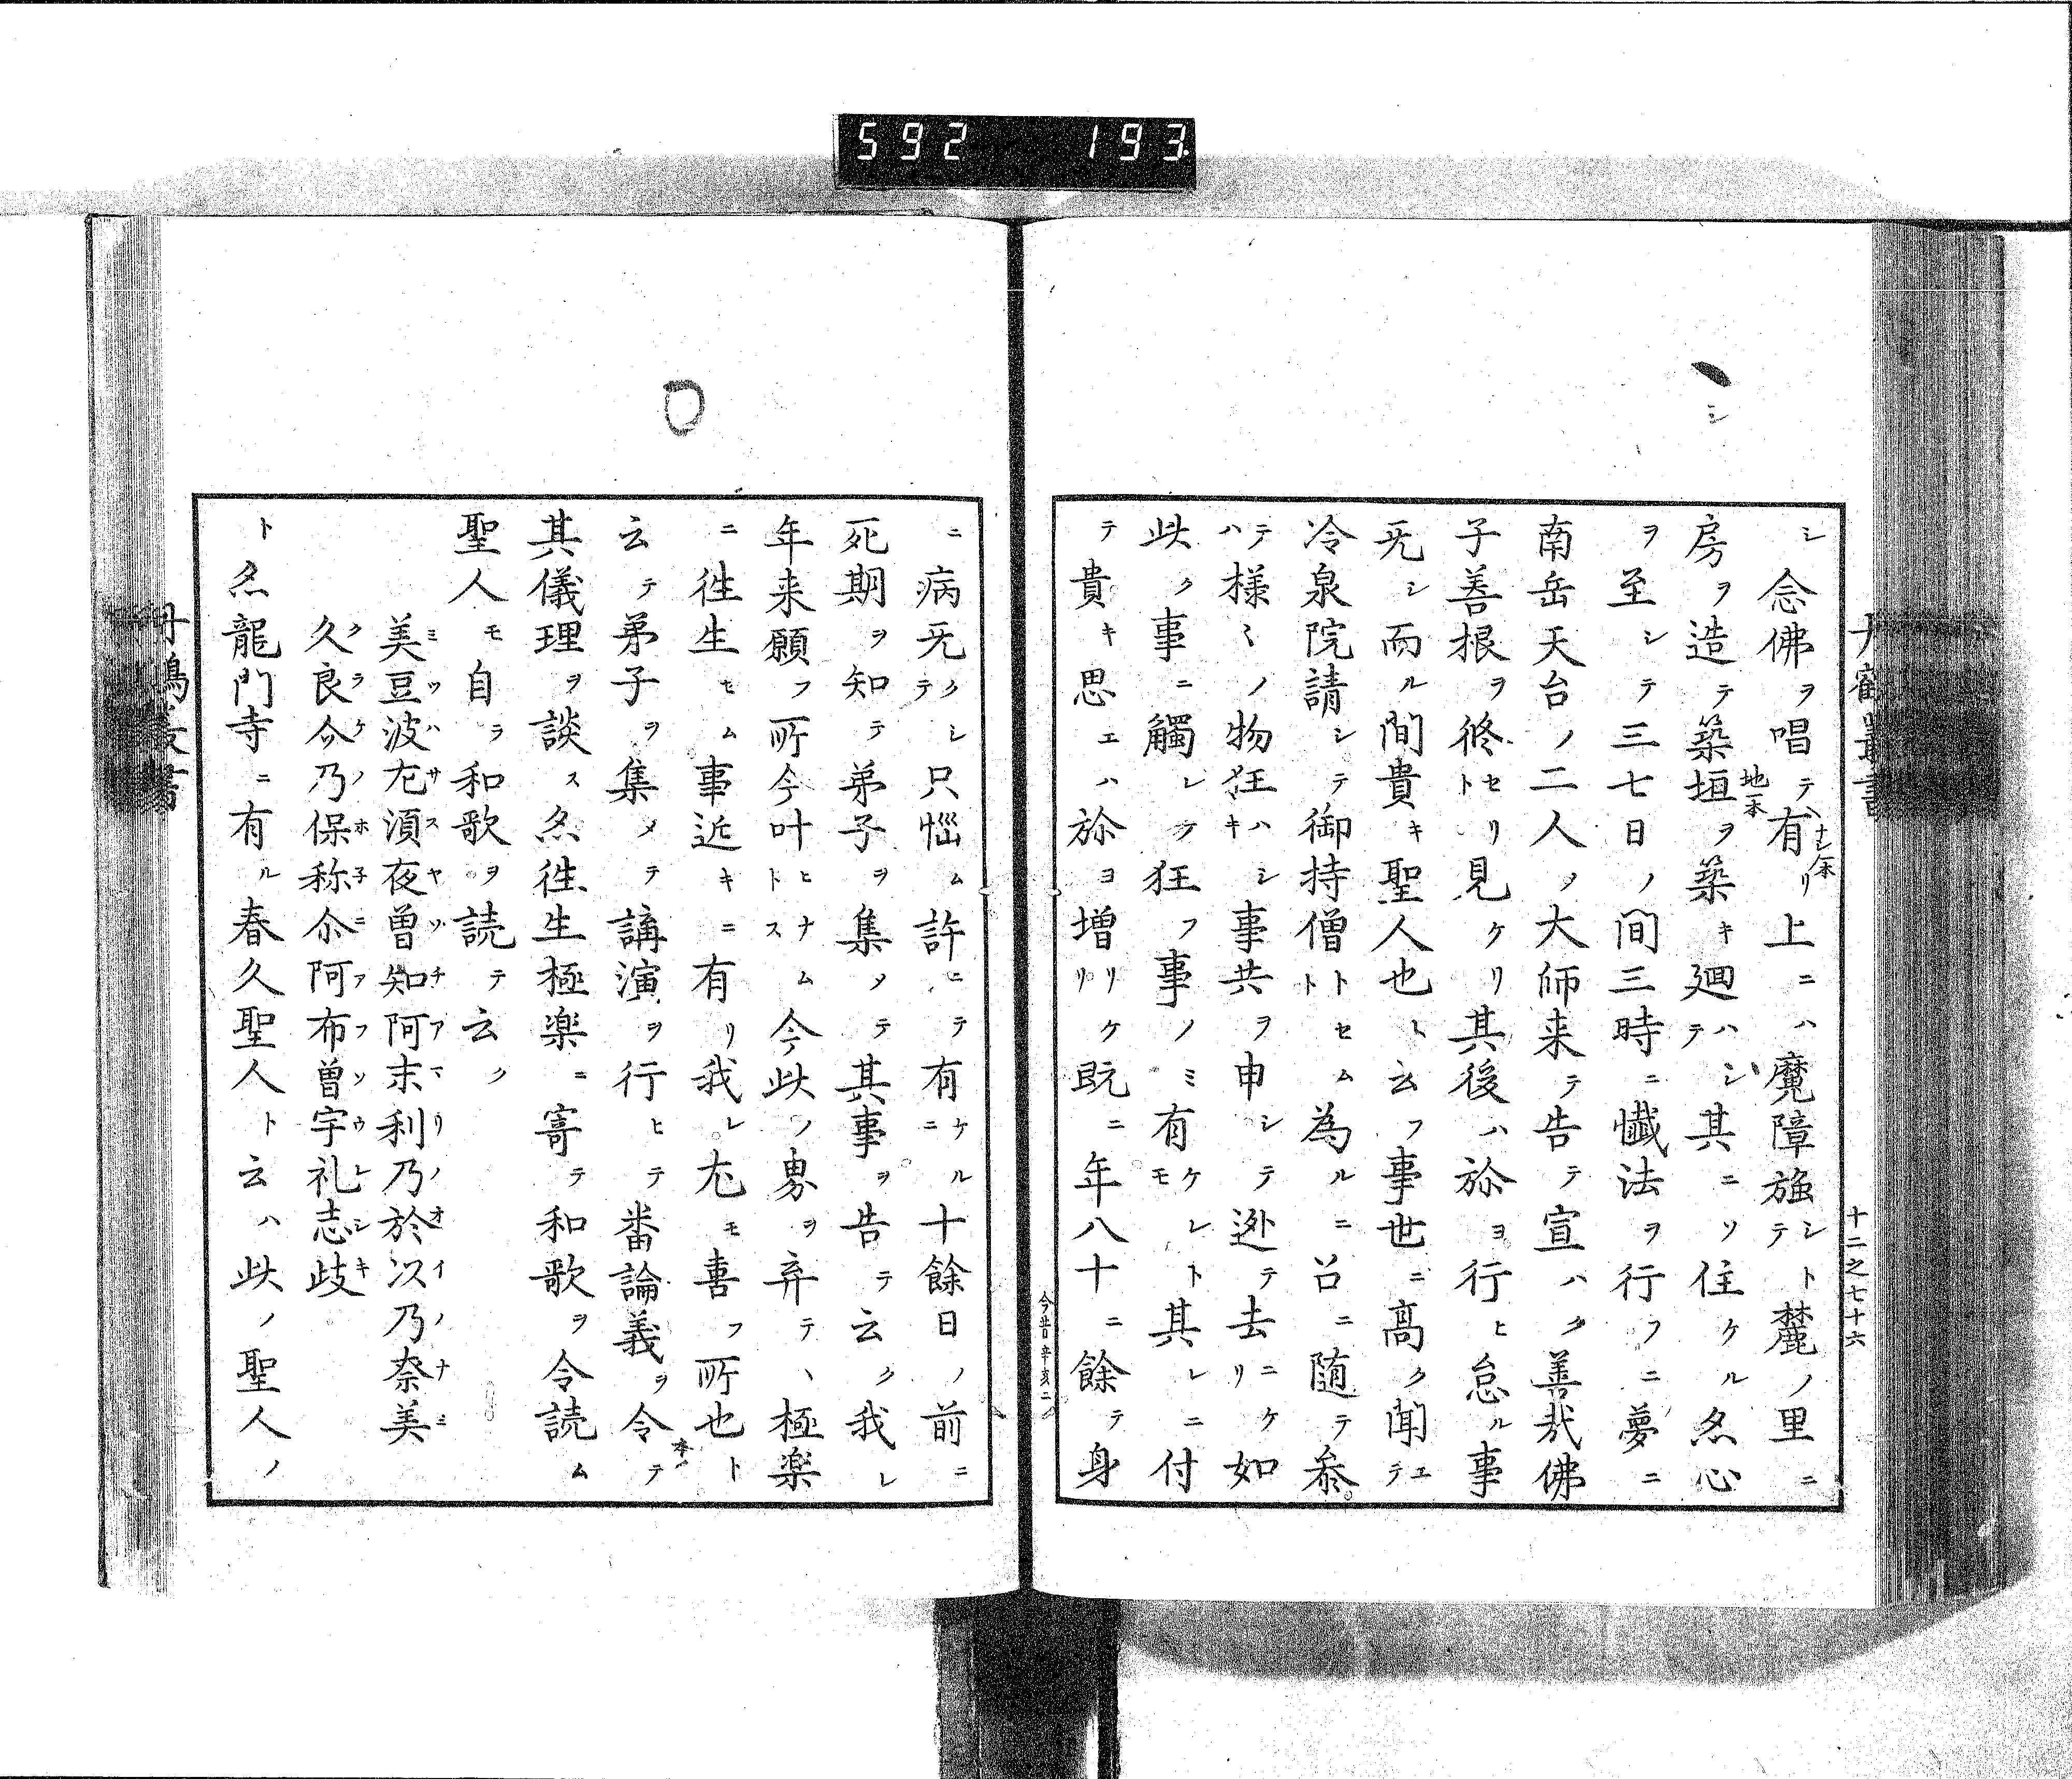 592 193
十二之七十六
シ念佛ヲ唱テ有リ上ニハ魔障強シトテ麓ノ里ニ
房ヲ造テ築垣ヲ築キ廻ハシテ其ニソ住ケル𠔥心
ヲ至シテ三七日ノ間三時ニ懺法ヲ行フニ夢ニ
南岳天台ノ二人ノ大師来テ告テ宣ハク善哉佛
子善根ヲ修セリト見ケリ其後ハ弥ヨ行ヒ怠ル事
无シ而ル間貴キ聖人也ト云フ事世ニ高ク聞エテ
冷泉院請シテ御持僧トセムト為ルニ召ニ随テ参
テ様〻ノ物狂ハシキ事共ヲ申シテ迯テ去ニケリ如
此ク事ニ觸レテ狂フ事ノミ有ケレトモ其レニ付
テ貴キ思エハ弥ヨ増リケリ既ニ年八十ニ餘テ身
今昔 辛亥二
ニ病无クシテ只惱ム許ニテ有ケルニ十餘日ノ前ニ
死期ヲ知テ弟子ヲ集メテ其事ヲ告テ云ク我レ
年来願フ所今叶ヒナムトス今此ノ界ヲ弃テ、極楽
ニ徃生セム事近キニ有リ我レ尤モ喜フ所也ト
云テ弟子ヲ集メテ講演ヲ行ヒテ番論義ヲ令テ
其儀理ヲ談ス亦徃生極楽ニ寄テ和歌ヲ令読ム
聖人モ自ラ和歌ヲ読テ云ク
美豆波左須夜曽知阿末利乃於以乃奈美
久良介乃保称尒阿布曽宇礼志岐
ト亦龍門寺ニ有ル春久聖人ト云ハ此ノ聖人ノ